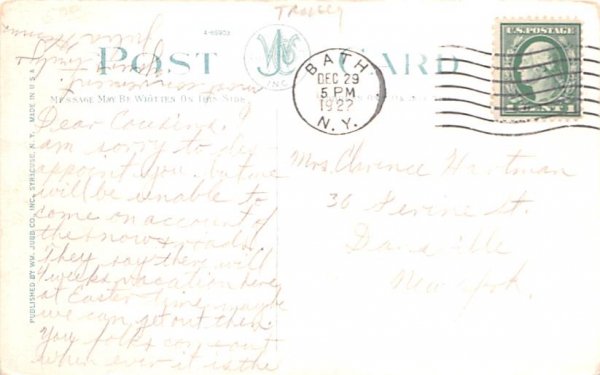 TROLLEY
A-69903
POST CARD
INC
MESSAGE MAY BE WRITTEN ON THIS SIDE
BATH
DEC 29
5 PM
1922
N.Y.
U.S. POSTAGE
1 CENT 1
PUBLISHED BY WM. JUBB CO., INC., SYRACUSE, N. Y. MADE IN U S A
Dear Cousins.
am sorry to dis
appoint you. but we
will be unable to
come on account of
the snow & roads.
They say there will
weeks vacation here
at Easter time maybe
we can get out then.
You folks can
when ever it is the
most convenient
Mrs. Clarence Hartman
36 Perine St.
Dansville
New York.